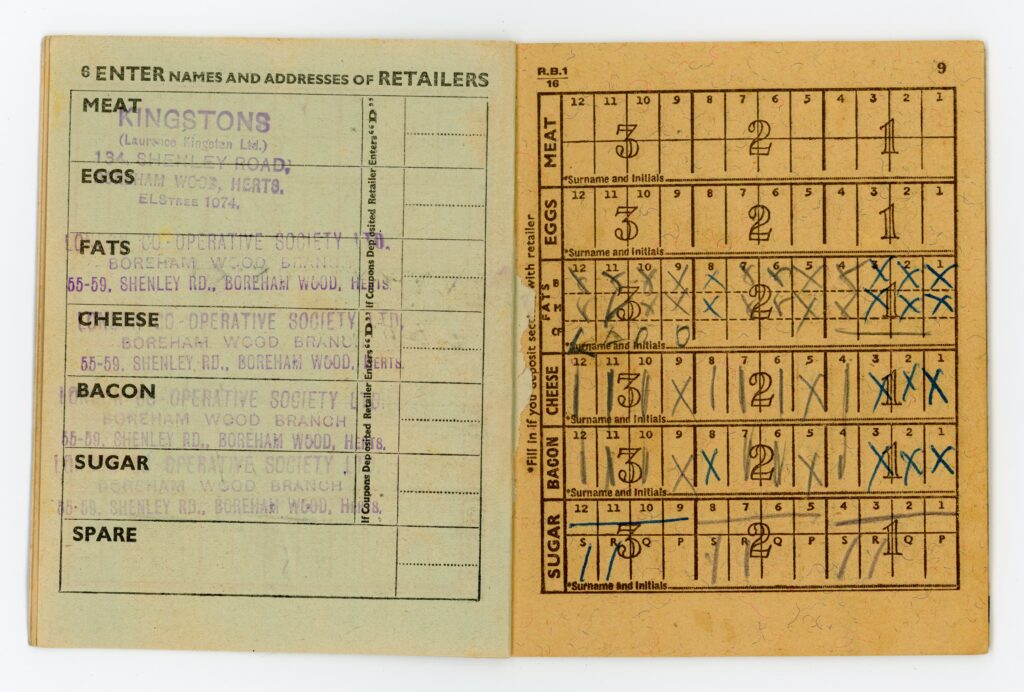 8 ENTER NAMES AND ADDRESSES OF RETAILERS
MEAT
KINGSTONS
(Laurence Kingston Ltd.)
134, SHENLEY ROAD,
HAM WOOD, HERTS.
ELSTREE 1074.
EGGS
FATS
CO-OPERATIVE SOCIETY LTD.
BOREHAM WOOD
55-59, SHENLEY RD., BOREHAM WOOD, HERTS.
CHEESE
CO-OPERATIVE SOCIETY LTD.
BOREHAM WOOD
55-59, SHENLEY RD., BOREHAM WOOD, HERTS.
BACON
CO-OPERATIVE SOCIETY LTD.
BOREHAM WOOD BRANCH
55-59, SHENLEY RD., BOREHAM WOOD, HERTS.
SUGAR
CO-OPERATIVE SOCIETY
BOREHAM WOOD BRANCH
55-59, SHENLEY RD., BOREHAM WOOD, HERTS.
SPARE
If Coupons Deposited Retailer Enters "D"
If Coupons Deposited Retailer Enters "D"
R.B.1
16
9
*Fill in if you deposit with retailer
MEAT
12 11 10 9 8 7 6 5 4 3 2 1
3 2 1
*Surname and Initials
EGGS
12 11 10 9 8 7 6 5 4 3 2 1
3 2 1
*Surname and Initials
FATS
12 11 10 9 8 7 6 5 4 3 2 1
3 2 1
*Surname and Initials
CHEESE
12 11 10 9 8 7 6 5 4 3 2 1
3 2 1
*Surname and Initials
BACON
12 11 10 9 8 7 6 5 4 3 2 1
3 2 1
*Surname and Initials
SUGAR
12 11 10 9 8 7 6 5 4 3 2 1
S R Q P S R Q P S R Q P
3 2 1
*Surname and Initials